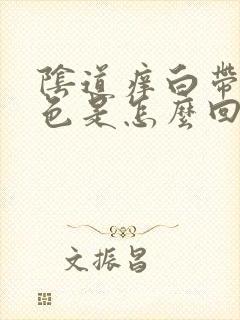 陰道痒白帶
色是怎麼回
文振昌